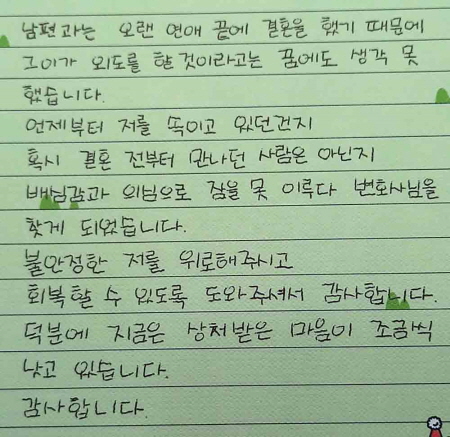 남편과는 오랜 연애 끝에 결혼을 했기 때문에
그이가 외도를 할 것이라고는 꿈에도 생각 못
했습니다.
언제부터 저를 속이고 있던건지
혹시 결혼 전부터 만나던 사람은 아닌지
배신감과 의심으로 잠을 못 이루다 변호사님을
찾게 되었습니다.
불안정한 저를 위로해주시고
회복할 수 있도록 도와주셔서 감사합니다.
덕분에 지금은 상처받은 마음이 조금씩
낫고 있습니다.
감사합니다.